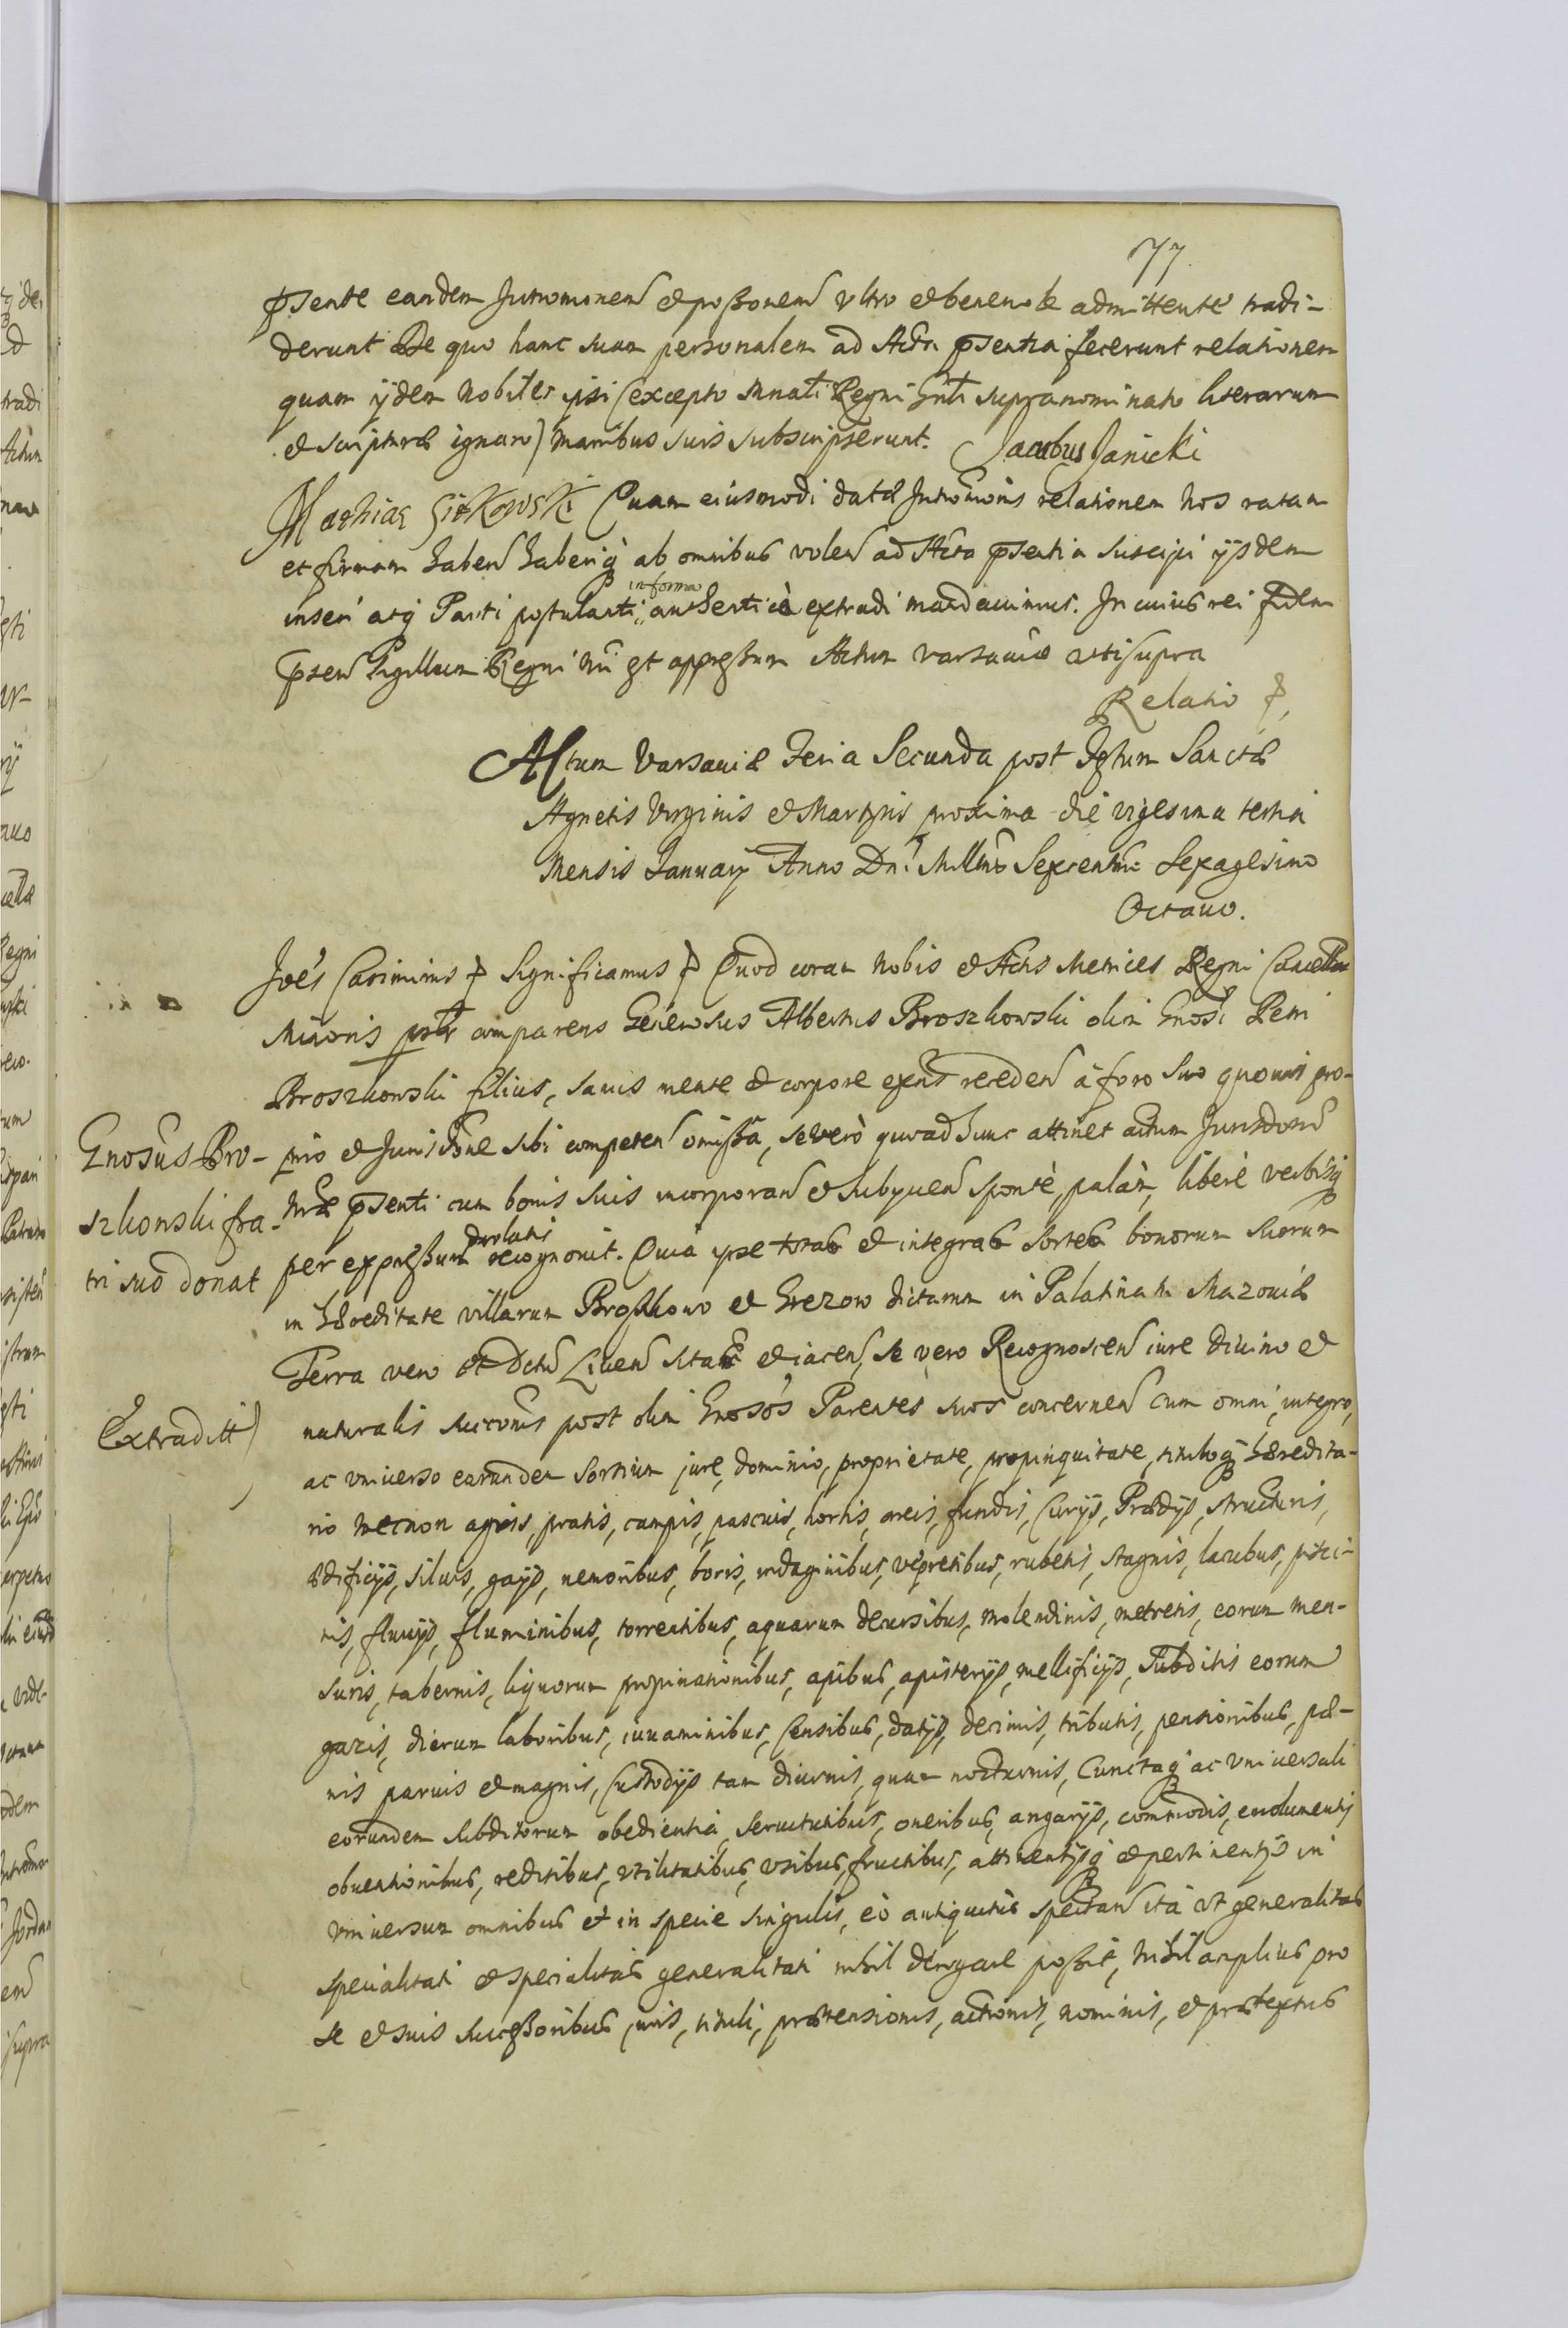 77
psente eandem Intromonem et possonem vltro et beneuole admittente tradi-
derunt De quo hanc suam personalem ad Acta psentia fecerunt relationem
quam ijdem Nobiles ipsi (excepto Mnrali Regni Gnli supranominato literarum
et scripturæ ignaro) manibus suis subscripserunt. Jacobus Janicki
Mathias Sitkowski Quam eiusmodi datæ Intromonis relationem Nos ratam
et firmam haben haberiq ab omnibus volen ad Acta psentia suscipi ijsdem
inseri atq Parti postulanti in forma authentica extradi mandauimus. In cuius rei fidem
psen Sigillum Regni Nri est appressum Actum Varsauiæ ut supra
Relatio
Actum Varsauiæ Feria Secunda post Festum Sanctæ
Agnetis Virginis et Martyris proxima die vigesima tertia
Mensis January Anno Dni Millmo Sexcentmo Sexagesimo
Octauo.
Joes Casimirus Significamus Quod coram Nobis et Actis Metrices Regni Cancellar
Minoris psltr comparens Generosus Albertus Broszkowski olim Gnosi Petri
Broszkowski filius, sanus mente et corpore existens receden à foro suo quouis pro-
Gnosus Bro-
szkowski fra-
tri suo donat
prio et Jurisdne sibi competen omissa, se verò quoad hunc attinet actum Jurisdoni
Nræ psenti cum bonis suis incorporan et subycien spontè, palàm, liberè verbisq
per expressum prolatis recognouit. Quia ipse totas et integras sortes bonorum suorum
in hæreditate villarum Broszkowo et Grezow dictarum in Palatinatu Mazouiæ
Terra vero et Dctu Liuen sitas et iacen, se vero Recognoscen iure diuino et
Extraditt
naturalis succonis post olim Gnosos Parentes suos concernen cum omni, integro,
ac vniuerso earundem sortium jure, dominio, proprietate, propinquitate, tituloq hæredita-
rio necnon agris, pratis, campis, pascuis, hortis, areis, fundis, Curijs, Prædijs, structuris,
ædificijs, siluis, gays, nemoribus, boris, indaginibus, vepretibus, rubetis, stagnis, lacubus, pisci-
nis, fluuijs, fluminibus, torrentibus, aquarum decursibus, molendinis, metretis, eorum men-
suris, tabernis, liquorum propinationibus, apibus, apisterijs, mellificijs, Subditis eorum
gazis, dierum laboribus, iuuaminibus, Censibus, datijs, decimis, tributis, pensionibus, pæ-
nis paruis et magnis, Custodijs tam diurnis, quam nocturnis, Cunctaq ac vniuersali
eorundem subditorum obedientia, seruitutibus, oneribus, angarijs, commodis, emolumentis
obuentionibus, reditibus, vtilitatibus, vsibus, fructibus, attinentijsq et pertinentijs in
vniuersum omnibus et in specie singulis, eò antiquitus spectan ità vt generalitas
specialitati et specialitas generalitati nihil derogare possit, nihil amplius pro
se et suis successoribus, iuris, tituli, prætensionis, actionis, nominis, et prætextus